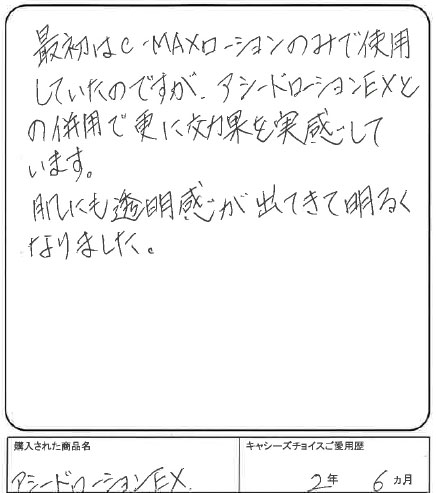 最初はC-MAXローションのみで使用
していたのですが、アシードローションEXと
の併用で更に効果を実感して
います。
肌にも透明感が出てきて明るく
なりました。
購入された商品名
キャシーズチョイスご愛用歴
アシードローションEX.
2年 6ヵ月